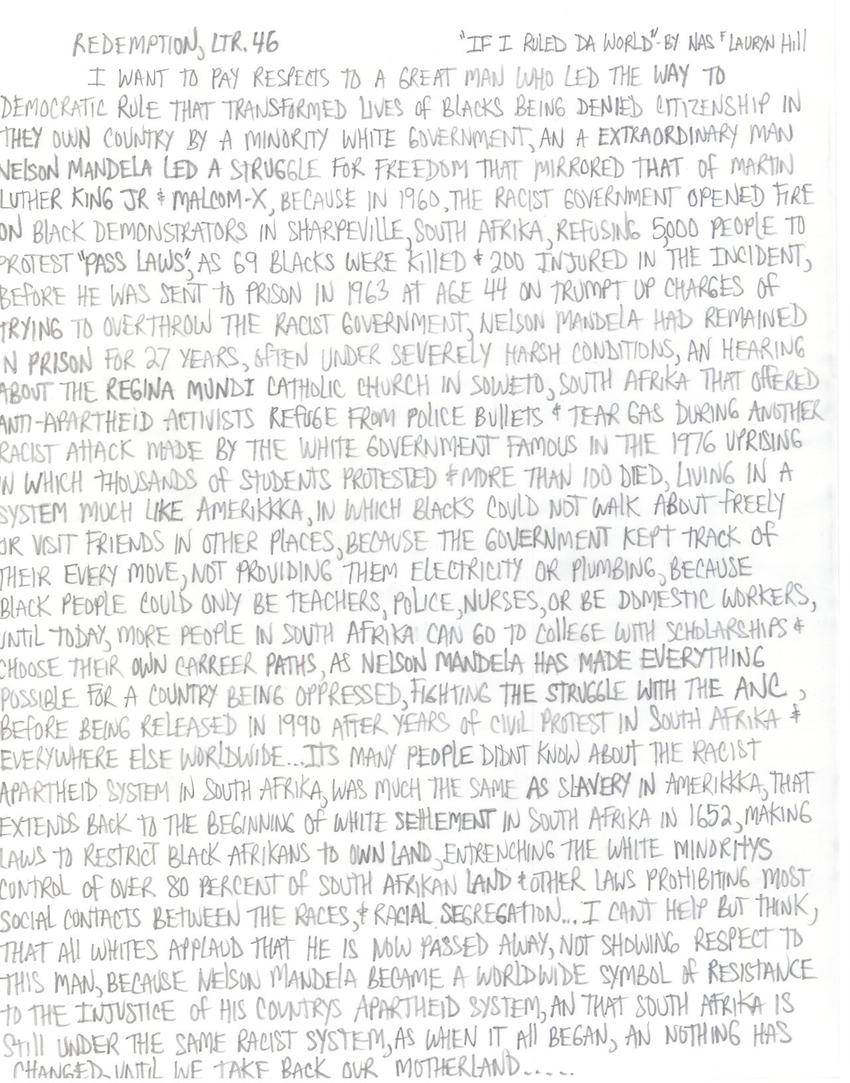 REDEMPTION, LTR. 46 "IF I RULED DA WORLD"-BY NAS F LAURYN Hill
I WANT TO PAY RESPECTS TO A GREAT MAN WHO LED THE WAY TO
DEMOCRATIC RULE THAT TRANSFORMED LIVES of BLACKS BEING DENIED CITIZENSHIP IN
THEY OWN COUNTRY BY A MINORITY WHITE GOVERNMENT, AN A EXTRAORDINARY MAN
NELSON MANDELA LED A STRUGGLE FOR FREEDOM THAT MIRRORED THAT OF MARTIN
LUTHER KING JR & MALCOM-X, BECAUSE IN 1960, THE RACIST GOVERNMENT OPENED FIRE
ON BLACK DEMONSTRATORS IN SHARPEVILLE, SOUTH AFRIKA, REFUSING 5,000 PEOPLE TO
PROTEST "PASS LAWS", AS 69 BLACKS WERE Killed & 200 INJURED IN THE INCIDENT,
BEFORE HE WAS SENT TO PRISON IN 1963 AT AGE 44 ON TRUMPT UP CHARGES OF
TRYING TO OVERTHROW THE RACIST GOVERNMENT, NELSON MANDELA HAD REMAINED
IN PRISON FOR 27 YEARS, OFTEN UNDER SEVERELY HARSH CONDITIONS, AN HEARING
ABOUT THE REGINA MUNDI CATHOLIC CHURCH IN SOWETO, SOUTH AFRIKA THAT OFFERED
ANTI-APARTHEID ACTIVISTS REFUGE FROM POLICE BUllETS & TEAR GAS DURING ANOTHER
RACIST ATTACK MADE BY THE WHITE GOVERNMENT FAMOUS IN THE 1976 UPRISING
IN WHICH THOUSANDS of STUDENTS PROTESTED & MORE THAN 100 DIED, LIVING IN A
SYSTEM MUCH LIKE AMERIKKKA, IN WHICH BLACKS COULD NOT WALK ABOUT FREELY
OR VISIT FRIENDS IN OTHER PLACES, BECAUSE THE GOVERNMENT KEPT TRACK OF
THEIR EVERY MOVE, NOT PROVIDING THEM ELECTRICITY OR PLUMBING, BECAUSE
BLACK PEOPLE COULD ONLY BE TEACHERS, POLICE, NURSES, OR BE DOMESTIC WORKERS,
UNTIL TODAY, MORE PEOPLE IN SOUTH AFRIKA CAN GO TO COllEGE WITH SCHOLARSHIPS &
CHOOSE THEIR OWN CARREER PATHS, AS NELSON MANDELA HAS MADE EVERYTHING
POSSIBLE FOR A COUNTRY BEING OPPRESSED, FIGHTING THE STRUGGLE WITH THE ANC,
BEFORE BEING RELEASED IN 1990 AFTER YEARS of CIVIL PROTEST IN SOUTH AFRIKA &
EVERYWHERE ELSE WORLDWIDE... ITS MANY PEOPLE DIDNT KNOW ABOUT THE RACIST
APARTHEID SYSTEM IN SOUTH AFRIKA, WAS MUCH THE SAME AS SLAVERY IN AMERIKKKA, THAT
EXTENDS BACK TO THE BEGINNING OF WHITE SETTLEMENT IN SOUTH AFRIKA IN 1652, MAKING
LAWS TO RESTRICT BLACK AFRIKANS TO OWN LAND, ENTRENCHING THE WHITE MINORITYS
CONTROL OF OVER 80 PERCENT OF SOUTH AFRIKAN LAND & OTHER LAWS PROHIBITING MOST
SOCIAL CONTACTS BETWEEN THE RACES, & RACIAL SEGREGATION... I CANT HELP BUT THINK,
THAT All WHITES APPLAUD THAT HE IS NOW PASSED AWAY, NOT SHOWING RESPECT TO
THIS MAN, BECAUSE NELSON MANDELA BECAME A WORLDWIDE SYMBOL of RESISTANCE
TO THE INJUSTICE of HIS COUNTRYS APARTHEID SYSTEM, AN THAT SOUTH AFRIKA IS
STill UNDER THE SAME RACIST SYSTEM, AS WHEN IT All BEGAN, AN NOTHING HAS
CHANGED UNTIL WE TAKE BACK OUR MOTHERLAND.....